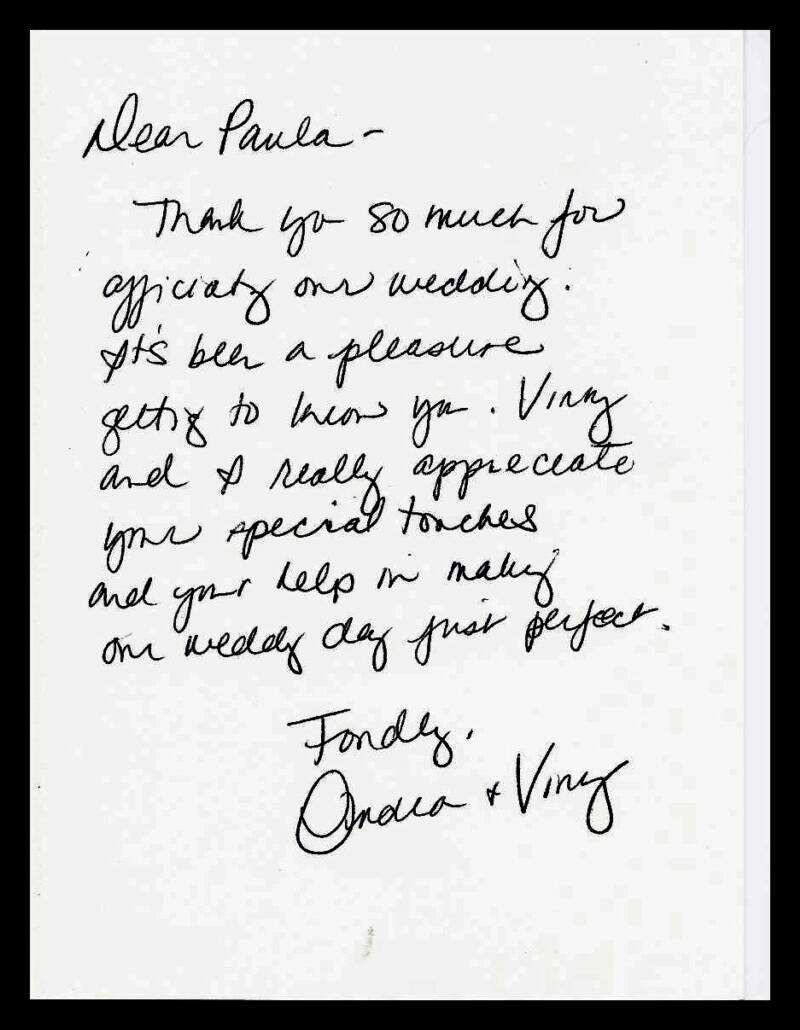 Dear Paula -
Thank you so much for
officiating our wedding.
It's been a pleasure
getting to know you. Vinny
and I really appreciate
your special touches
and your help in making
our wedding day just perfect.
Fondly,
Andrea + Vinny